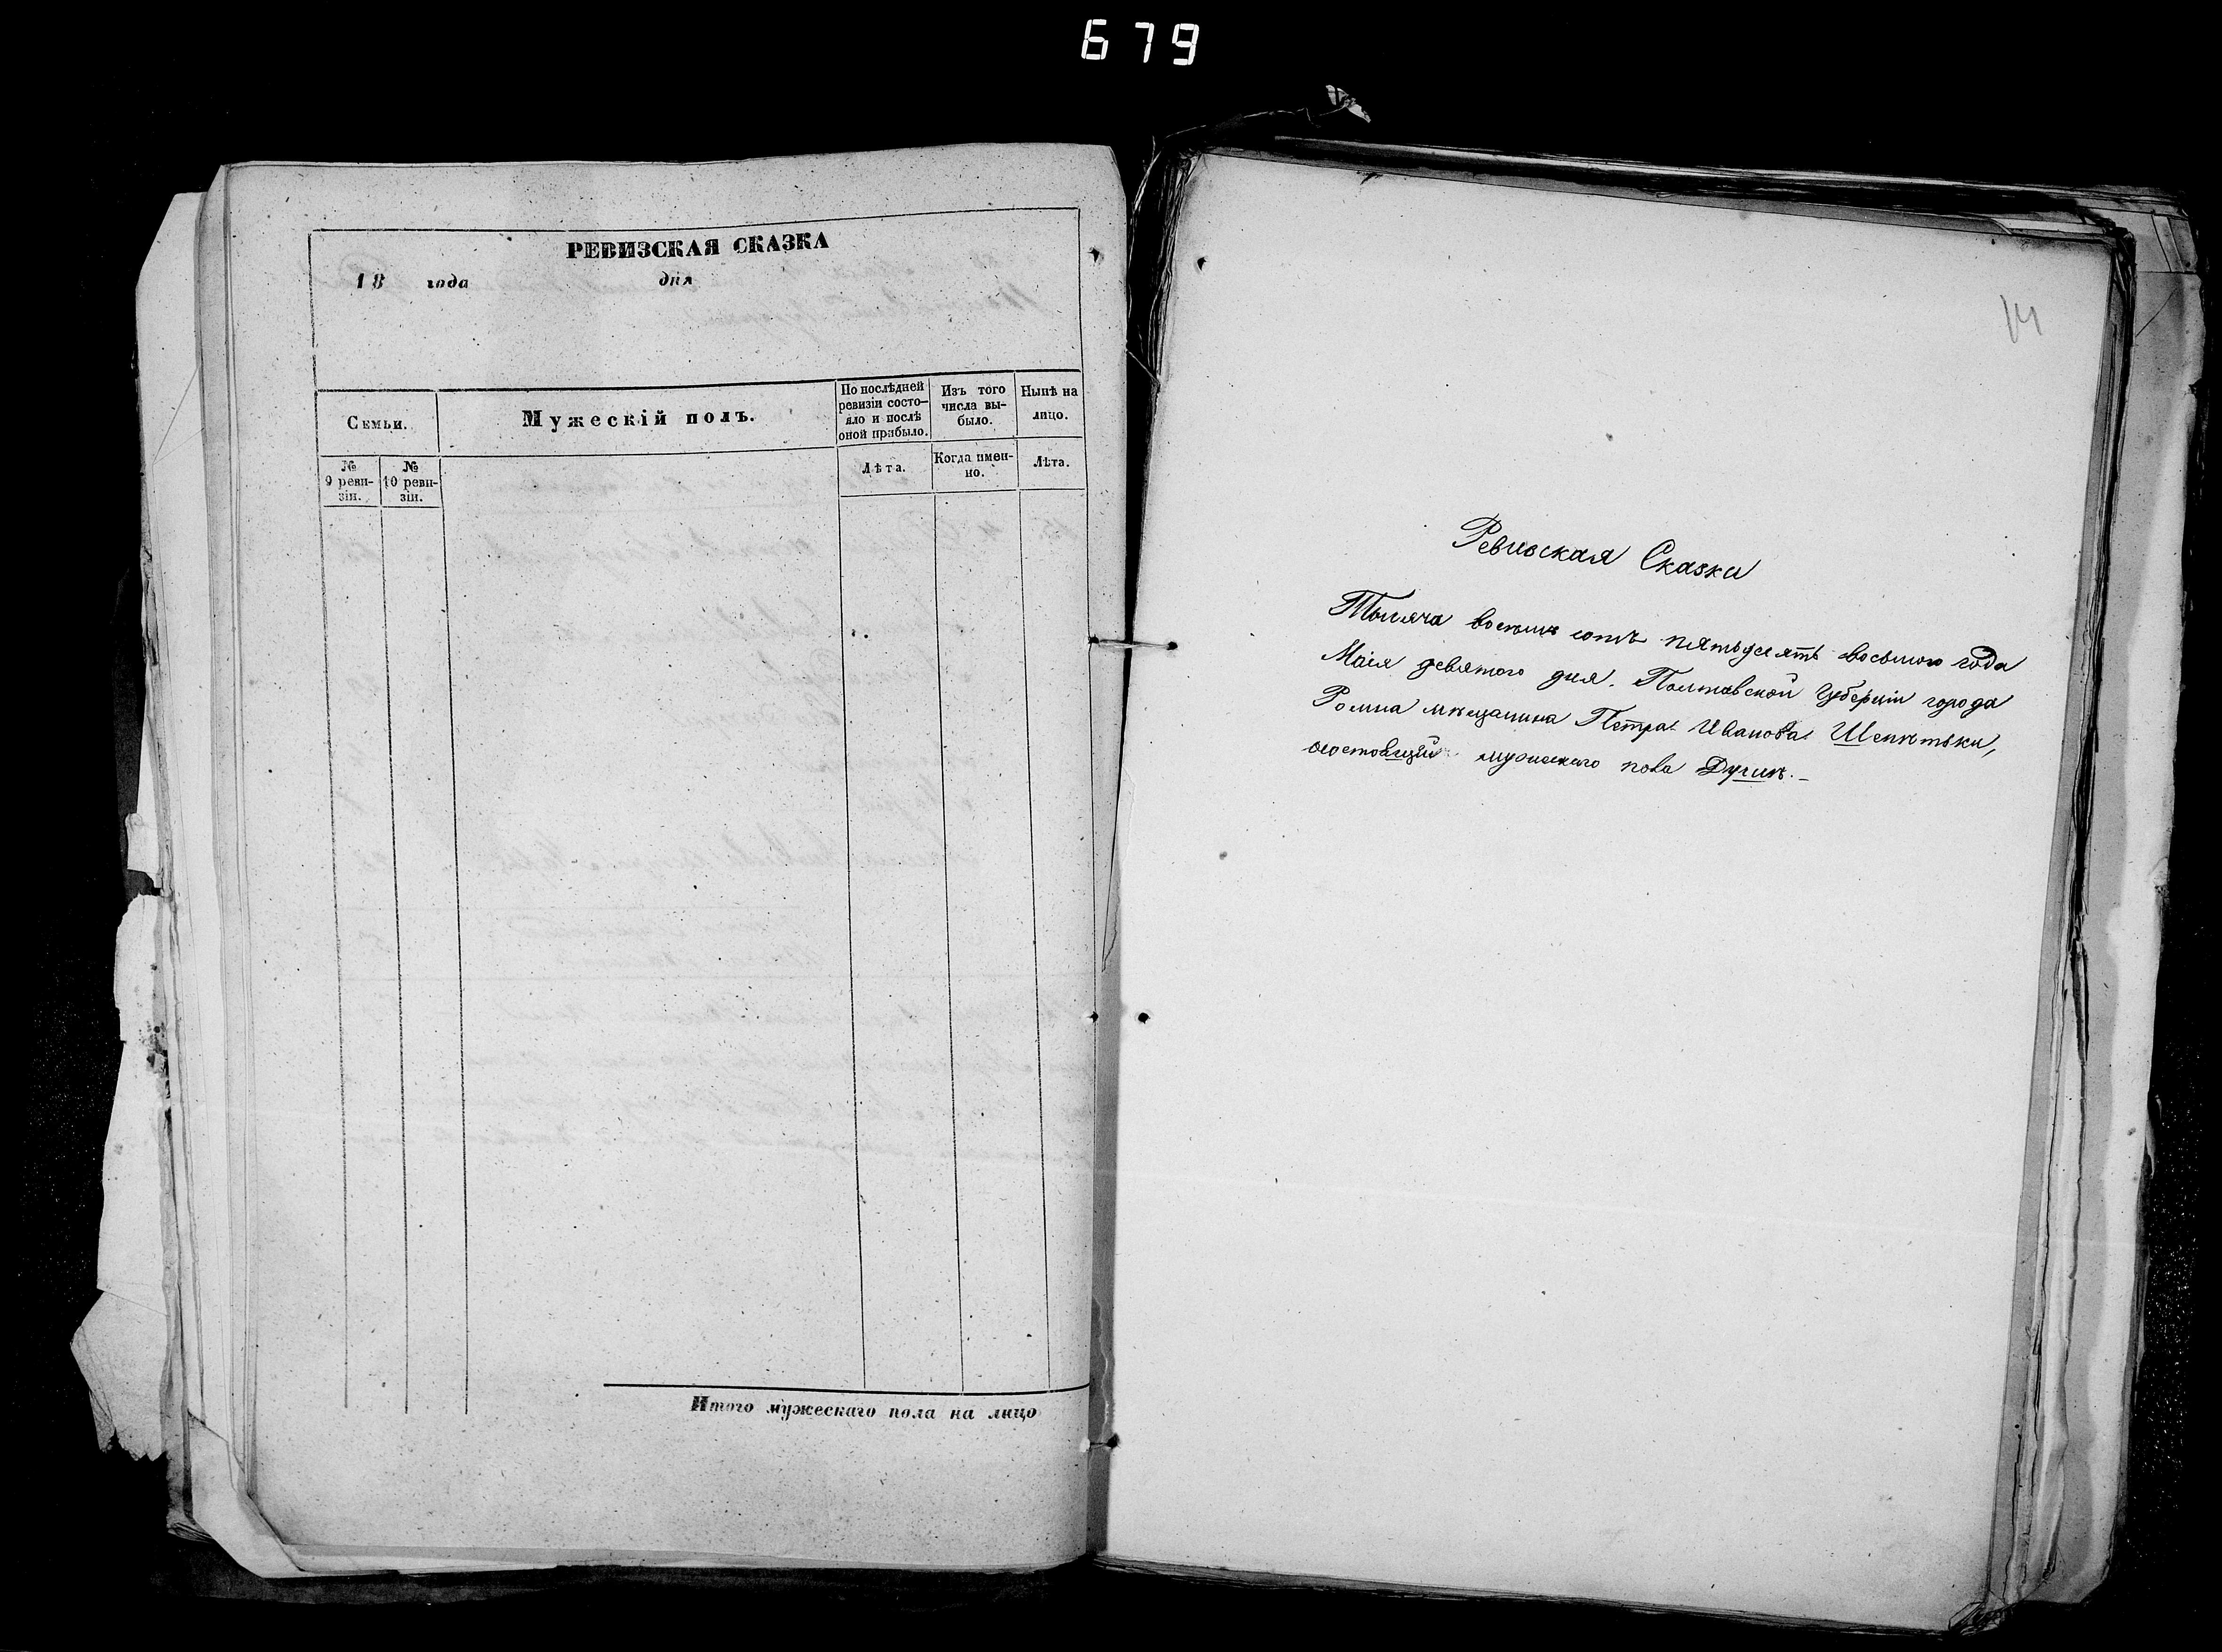 679
РЕВИЗСКАЯ СКАЗКА
18 года дня
Семьи.
Мужескій полъ.
По послѣдней
ревизіи состо-
яло и послѣ
оной прибыло.
Изъ того
числа вы-
было.
Нынѣ на
лицо.
№
9 реви-
зіи.
№
10 реви-
зіи.
Лѣта.
Когда имен-
но.
Лѣта.
Итого мужескаго пола на лицо
14
Ревизская Сказка
Тысяча восемь сотъ пятьдесятъ восьмого года
Маія девятого дня. Полтавской Губерніи города
Ромна мѣщанина Петра Иванова
мужескаго пола Душъ.